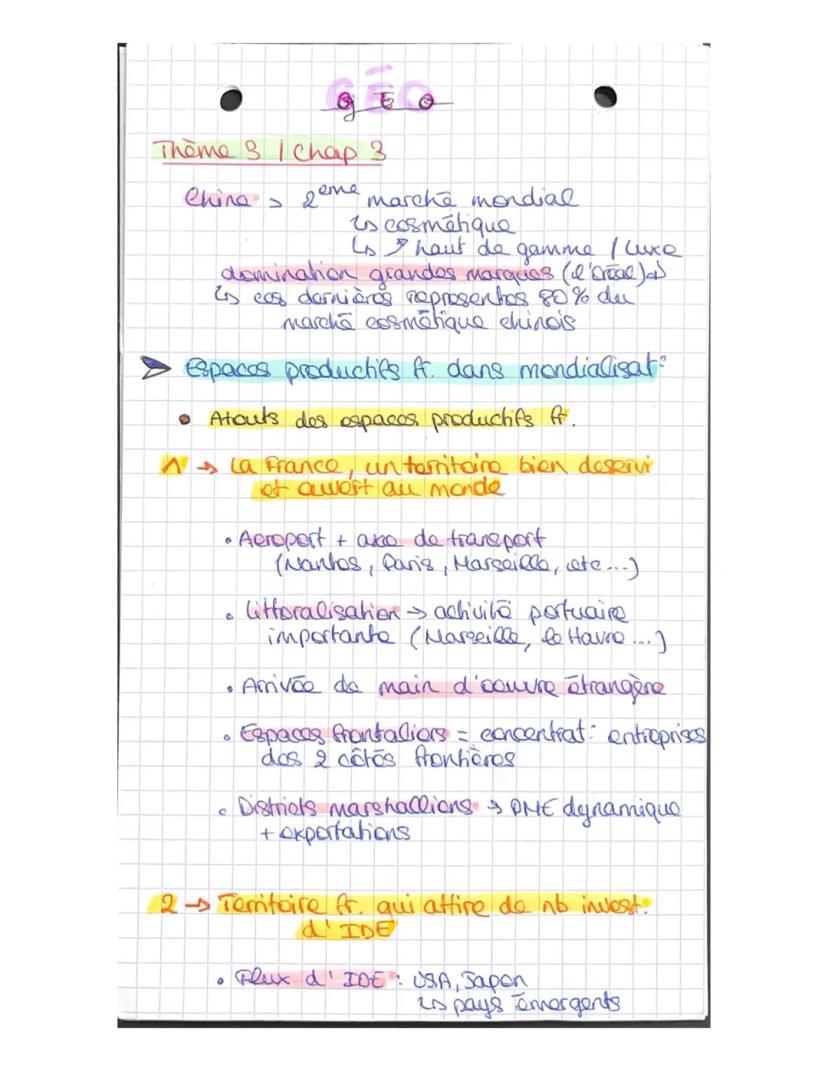 GÉO
Thème 3 / Chap 3
Chine > 2eme marché mondial
↳ cosmétique
↳ ↗ haut de gamme / luxe
domination grandes marques (l'Oréal)
↳ ces dernières representes 80% du
marché cosmétique chinois
➤ Espaces productifs fr. dans mondialisat°
• Atouts des espaces productifs fr.
1 → La France, un territoire bien desservi
et ouvert au monde
• Aeroport + axe de transport
(Nantes, Paris, Marseille, etc...)
• Littoralisation → activité portuaire
importante (Marseille, le Havre...)
• Arrivée de main d'oeuvre étrangère
• Espaces frontaliers = concentrat° entreprises
des 2 côtés frontières
• Districts marshalliens → PME dynamique
+ exportations
2 → Territoire fr. qui attire de nb invest.
d'IDE
• Flux d'IDE : USA, Japon
↳ pays émergents